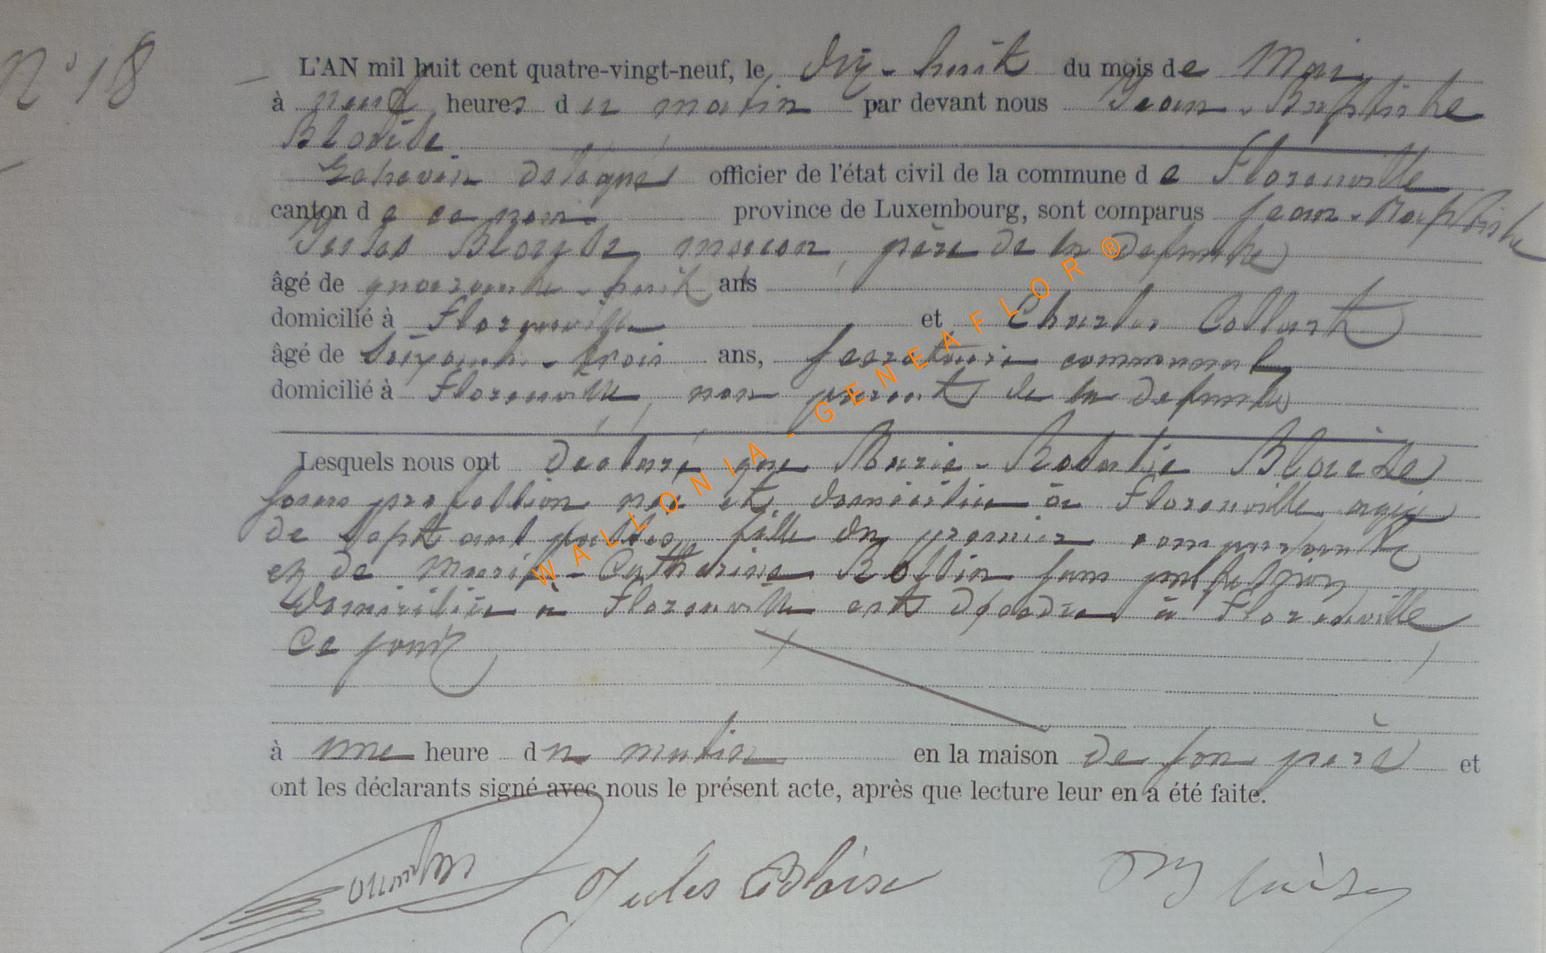 N° 18
L'AN mil huit cent quatre-vingt-neuf, le dix-huit du mois de Mai
à neuf heures du matin par devant nous Jean-Baptiste
Blaise
Echevin délégué officier de l'état civil de la commune de Florenville
canton de ce nom province de Luxembourg, sont comparus Jean-Baptiste
Jules Blaise, maçon, père de la defunte
âgé de quarante-huit ans
domicilié à Florenville et Charles Collart
âgé de soixante-trois ans, secrétaire communal
domicilié à Florenville, non parent de la defunte
Lesquels nous ont déclaré que Marie- Blaise
sans profession née et domiciliée à Florenville agée
de sept ans fille du premier comparant
et de Marie-Catherine sans profession
domiciliée à Florenville est décédée à Florenville
Ce jour
à une heure du matin en la maison de son père et
ont les déclarants signé avec nous le présent acte, après que lecture leur en a été faite.
Jules Blaise
WALLONIA - GENEAFLOR ®